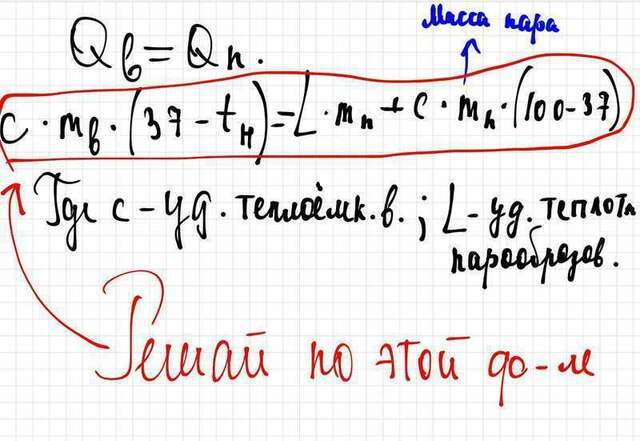 Масса пара
Qв = Qп.
c · mв · (37 - tн) = L · mп + c · mп · (100-37)
Где c - уд. теплоёмк. в. ; L - уд. теплота
парообразов.
Решай по этой фо-ле